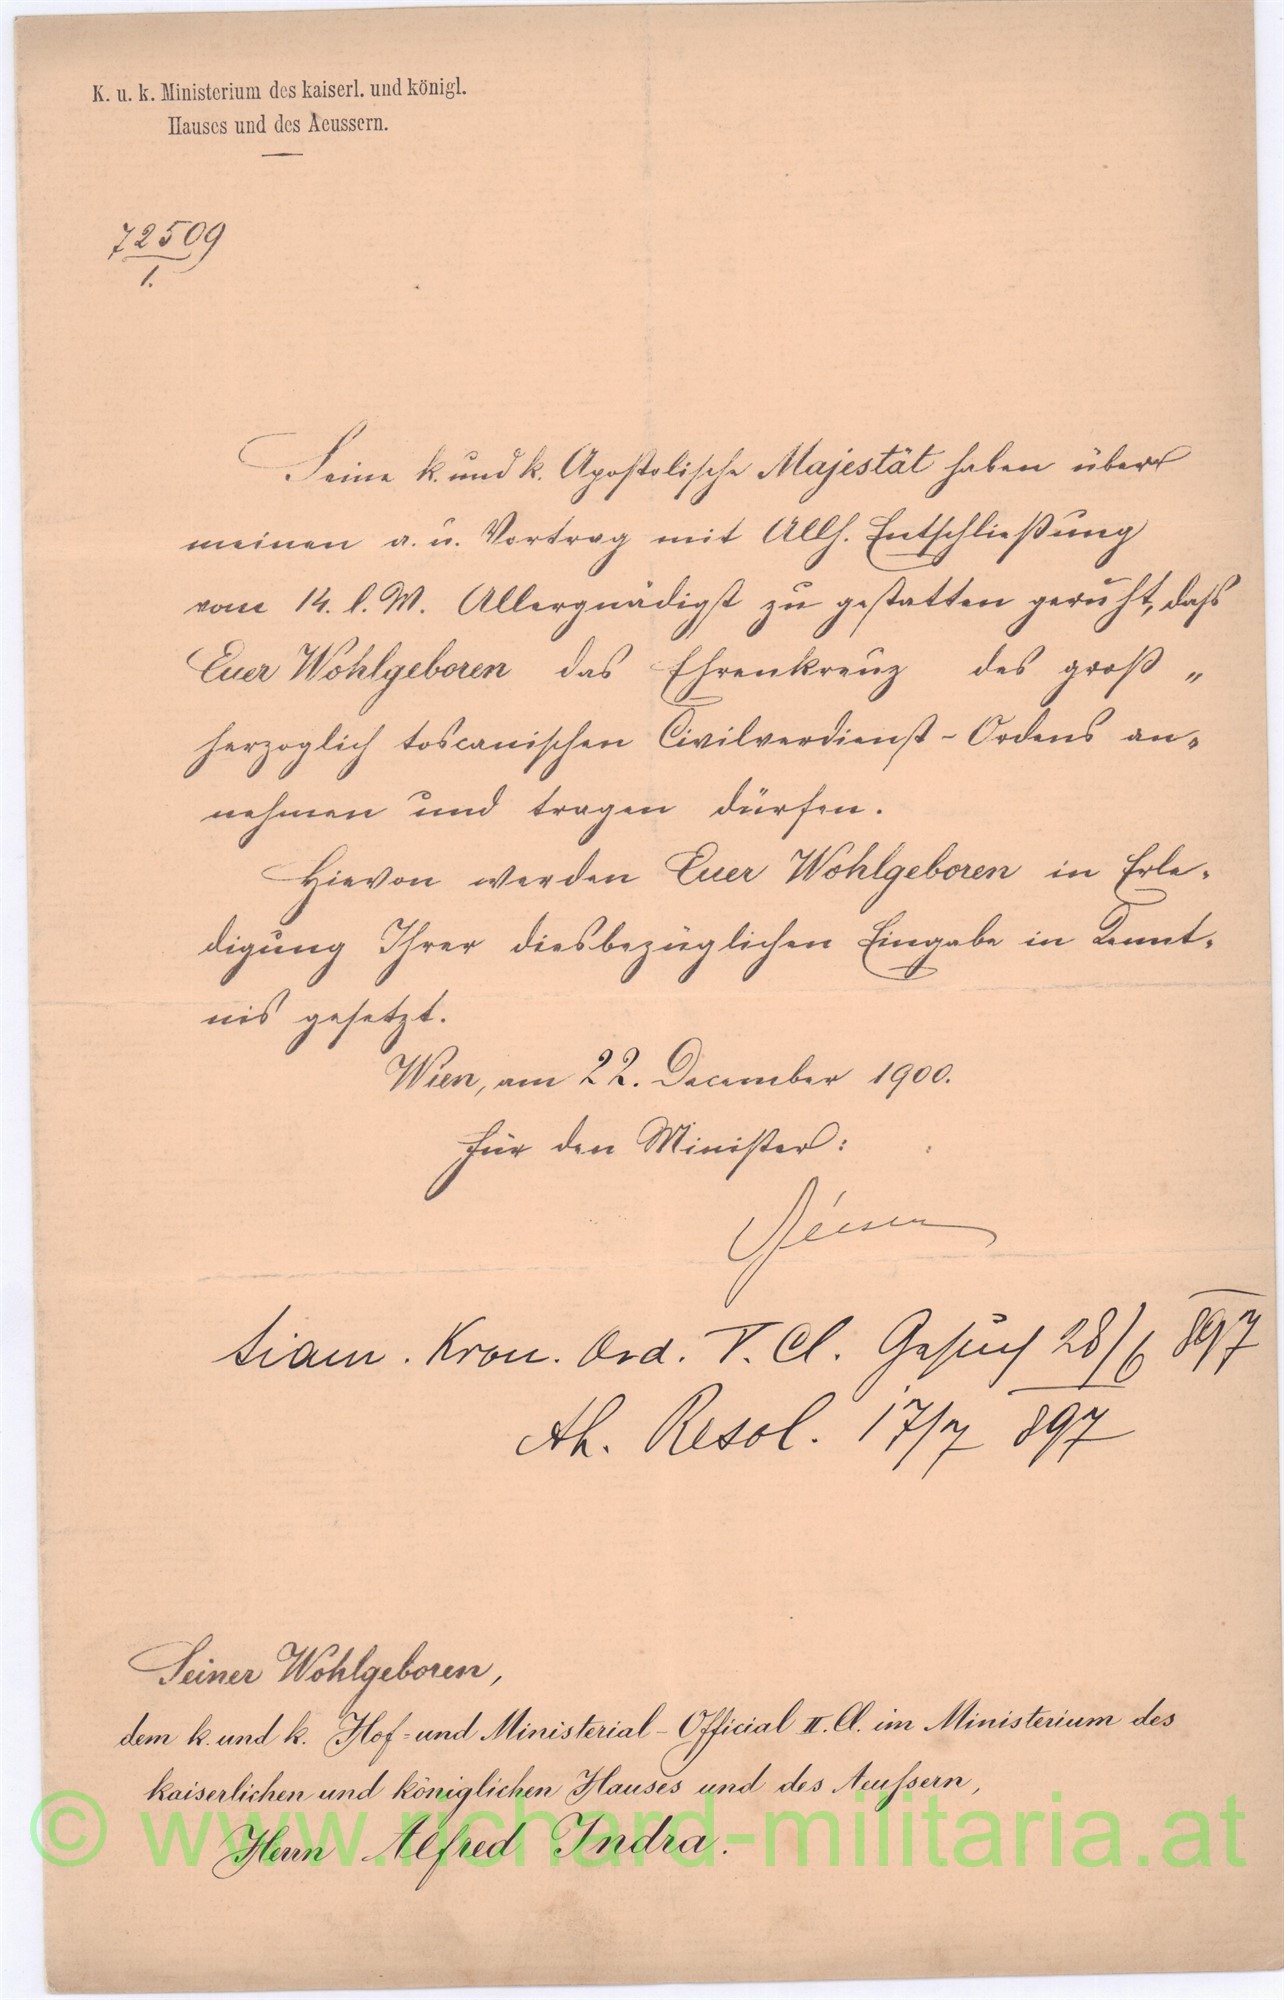 K. u. k. Ministerium des kaiserl. und königl.
Hauses und des Aeussern.
72509
1.
Seine k. und k. Apostolische Majestät haben über
meinen a. u. Vortrag mit Allh. Entschließung
vom 14. l. M. Allergnädigst zu gestatten geruht, daß
Euer Wohlgeboren das Ehrenkreuz des groß„
herzoglich toscanischen Civilverdienst-Ordens an„
nehmen und tragen dürfen.
Hievon werden Euer Wohlgeboren in Erle„
digung Ihrer diesbezüglichen Eingabe in Kennt„
nis gesetzt.
Wien, am 22. December 1900.
Für den Minister:
Siam. Kron. Ord. V. Cl. Gesuch 28/6 897
Ah. Resol. 17/7 897
Seiner Wohlgeboren,
dem k. und k. Hof- und Ministerial-Official II. Cl. im Ministerium des
kaiserlichen und königlichen Hauses und des Aeußern,
Herrn Alfred Indra.
© www.richard-militaria.at